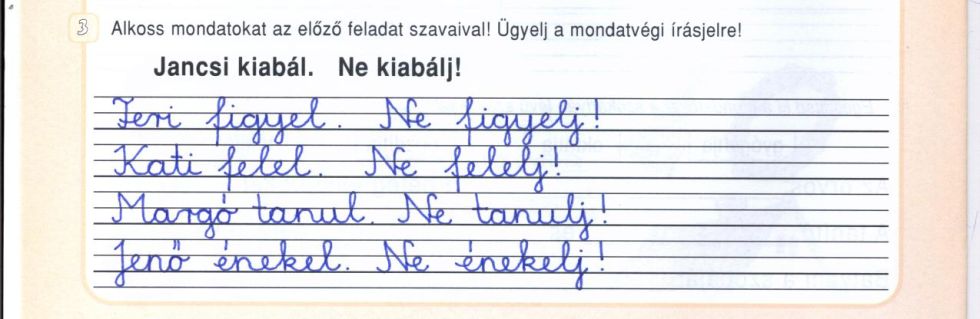 3 Alkoss mondatokat az előző feladat szavaival! Ügyelj a mondatvégi írásjelre!
Jancsi kiabál. Ne kiabálj!
Feri figyel. Ne figyelj!
Kati felel. Ne felelj!
Margó tanul. Ne tanulj!
Jenő énekel. Ne énekelj!